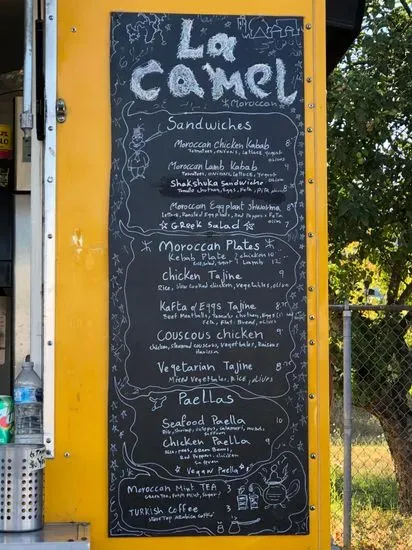 La
Camel
Moroccan
Sandwiches
Moroccan chicken Kabab 8
Tomatoes, onions, lettuce, yogurt
olives
Moroccan Lamb Kabab 8
Tomatoes, onions, lettuce, yogurt
olives
Shakshuka Sandwiche
Tomato chutney, Eggs, Feta, Pita, olives 8
Moroccan Eggplant Shwarma 8
lettuce, Roasted Eggplants, Red Peppers + Feta
☆ GREEK Salad ☆ 7
Moroccan Plates
Kebab Plate chicken 10
Rice, salad, Lamb 12
Chicken Tajine 9
Rice, slow cooked chicken, vegetables, olives
Kafta & Eggs Tajine 8
Beef Meatballs, Tomato chutney, Eggs
feta, flat-Bread, olives
Couscous chicken 9
chicken, steamed couscous, vegetables, Raisins
Harissa
Vegetarian Tajine 8
Mixed Vegetables, Rice, olives
Paellas
Seafood Paella 10
Rice, shrimp, octopus, calamari, mussels,
saffron
Chicken Paella 9
Rice, peas, Green Beans,
Red Peppers, chicken
saffron
Vegan Paella
Moroccan Mint TEA 3
Green Tea, fresh mint, sugar
TURKISH Coffee 3
Stove Top Arabica Coffee